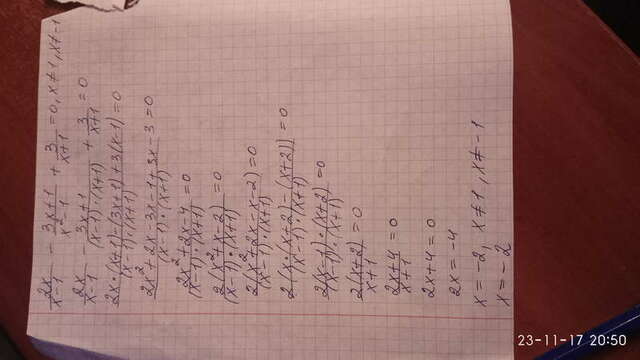 2x/(x-1) - (3x+1)/(x²-1) + 3/(x+1) = 0, x≠1, x≠-1
2x/(x-1) - (3x+1)/((x-1)·(x+1)) + 3/(x+1) = 0
(2x·(x+1)-(3x+1)+3(x-1))/((x-1)·(x+1)) = 0
(2x²+2x-3x-1+3x-3)/((x-1)·(x+1)) = 0
(2x²+2x-4)/((x-1)·(x+1)) = 0
2(x²+x-2)/((x-1)·(x+1)) = 0
2(x²+2x-x-2)/((x-1)·(x+1)) = 0
2(x·(x+2)-(x+2))/((x-1)·(x+1)) = 0
2(x-1)·(x+2)/((x-1)·(x+1)) = 0
2(x+2)/(x+1) = 0
(2x+4)/(x+1) = 0
2x+4=0
2x=-4
x=-2, x≠1, x≠-1
x=-2
23-11-17 20:50